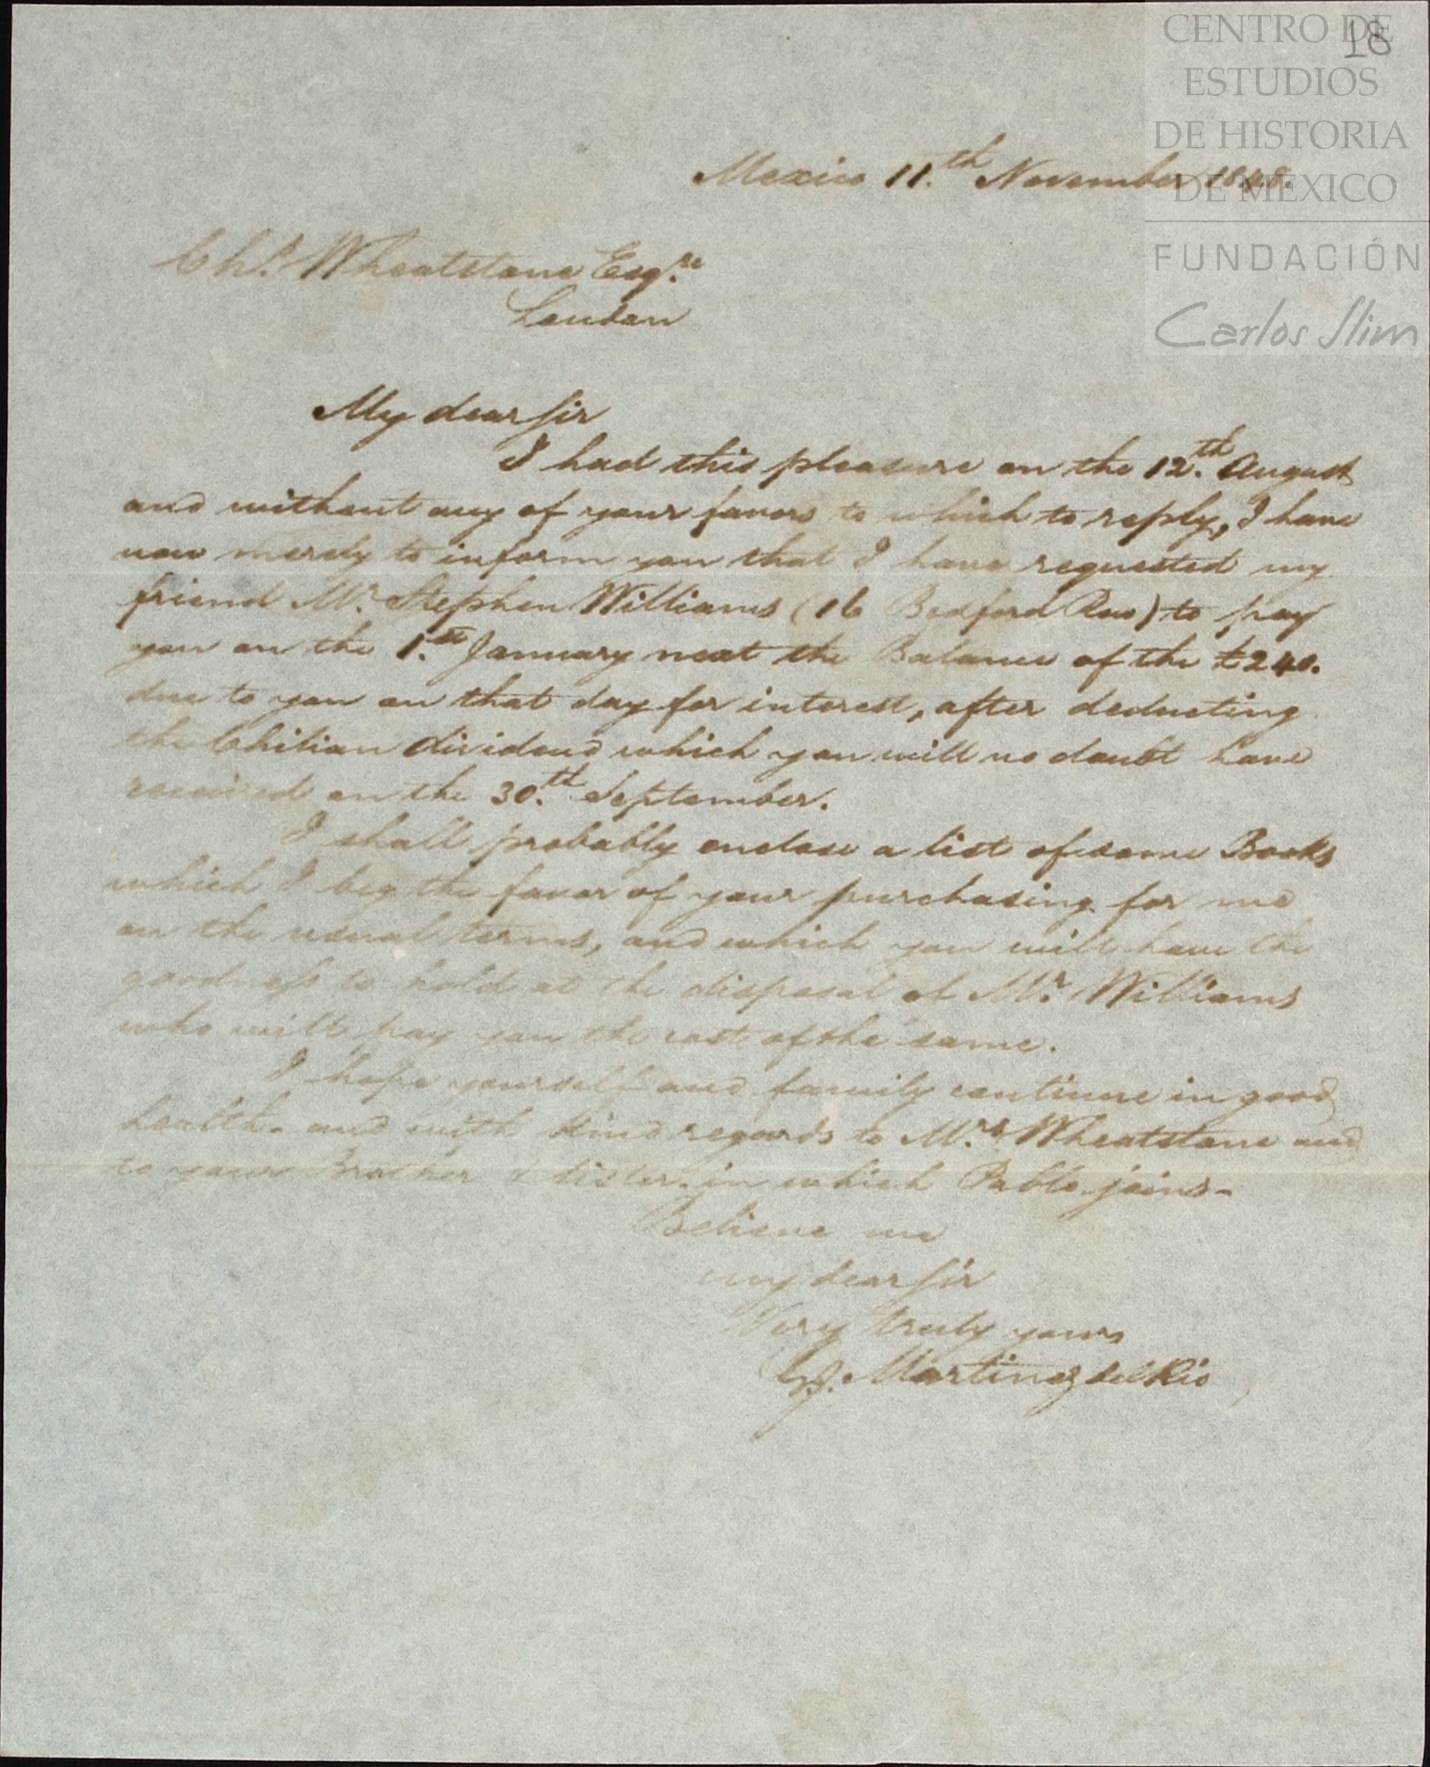 18
CENTRO DE
ESTUDIOS
DE HISTORIA
DE MEXICO
FUNDACIÓN
Carlos Slim
Mexico 11.th November 1848.
Chs. Wheatstone Esqre.
London
My dear Sir
I had this pleasure on the 12th. August
and without any of your favors to which to reply, I have
now merely to inform you that I have requested my
friend Mr. Stephen Williams (16 Bedford Row) to pay
you on the 1.st January next the Balance of the £240.
due to you on that day for interest, after deducting
the Chilian dividend which you will no doubt have
received on the 30.th September.
I shall probably enclose a list of some Books
which I beg the favor of your purchasing for me
on the usual terms, and which you will have the
goodness to hold at the disposal of Mr. Williams
who will pay you the cost of the same.
I hope yourself and family continue in good
health - and with kind regards to Mrs. Wheatstone and
to your Brother & Sister, in which Pablo joins -
Believe me
my dear Sir
Very truly yours
Martinez del Rio